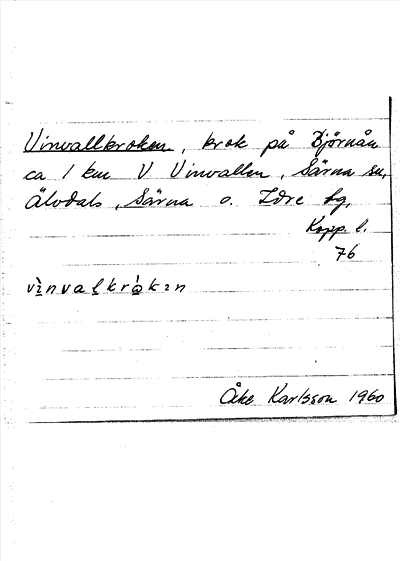 Vinvallkroken, krok på Björnån
ca 1 km V Vinvallen, Särna sn,
Älvdals, Särna o. Idre tg,
Kopp. l.
76
vìnvalkrókɪn
Åke Karlsson 1960